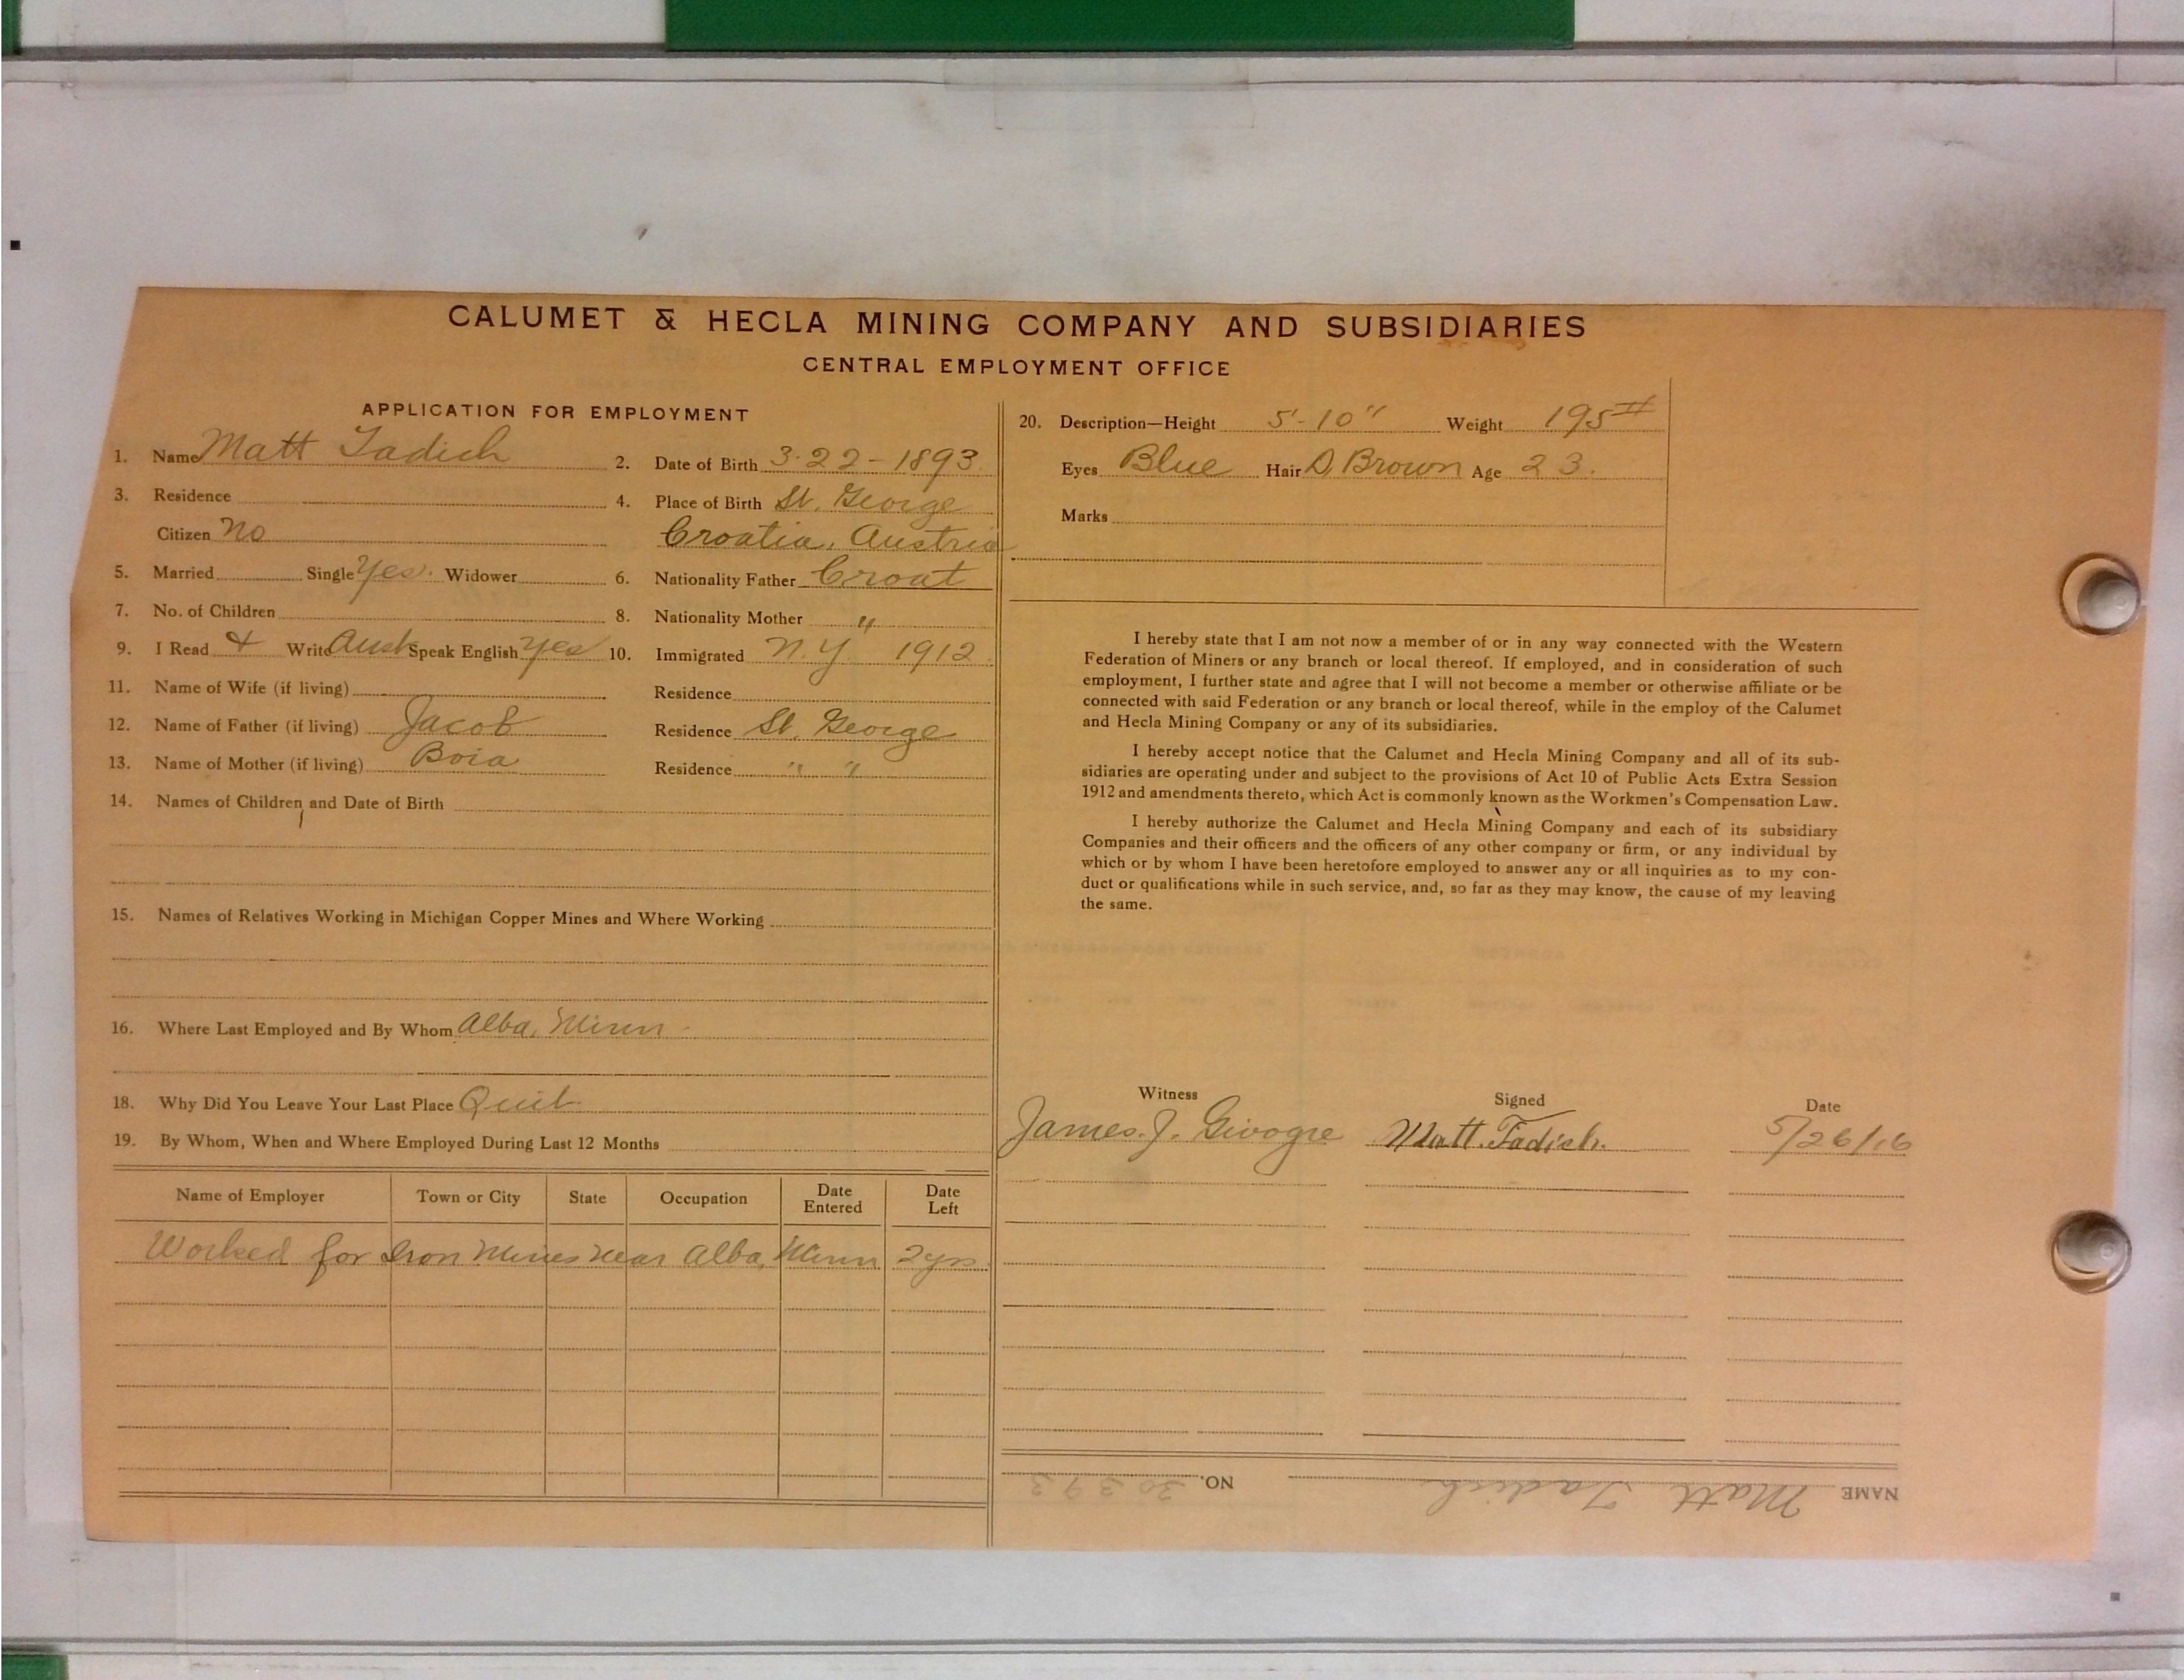 CALUMET & HECLA MINING COMPANY AND SUBSIDIARIES
CENTRAL EMPLOYMENT OFFICE
APPLICATION FOR EMPLOYMENT
1. Name Matt Tadich 2. Date of Birth 3-22-1893
3. Residence 4. Place of Birth St. George
Citizen No Croatia, Austria
5. Married Single Yes. Widower 6. Nationality Father Croat
7. No. of Children 8. Nationality Mother "
9. I Read & Write Aust Speak English Yes 10. Immigrated N.Y 1912
11. Name of Wife (if living) Residence
12. Name of Father (if living) Jacob Residence St. George
13. Name of Mother (if living) Bora Residence " "
14. Names of Children and Date of Birth
15. Names of Relatives Working in Michigan Copper Mines and Where Working
16. Where Last Employed and By Whom Alba, Minn.
18. Why Did You Leave Your Last Place Quit
19. By Whom, When and Where Employed During Last 12 Months
Name of Employer Town or City State Occupation Date Entered Date Left
Worked for Iron Mines near Alba, Minn 2 yrs.
20. Description—Height 5'-10" Weight 195#
Eyes Blue Hair D Brown Age 23.
Marks
I hereby state that I am not now a member of or in any way connected with the Western
Federation of Miners or any branch or local thereof. If employed, and in consideration of such
employment, I further state and agree that I will not become a member or otherwise affiliate or be
connected with said Federation or any branch or local thereof, while in the employ of the Calumet
and Hecla Mining Company or any of its subsidiaries.
I hereby accept notice that the Calumet and Hecla Mining Company and all of its sub-
sidiaries are operating under and subject to the provisions of Act 10 of Public Acts Extra Session
1912 and amendments thereto, which Act is commonly known as the Workmen's Compensation Law.
I hereby authorize the Calumet and Hecla Mining Company and each of its subsidiary
Companies and their officers and the officers of any other company or firm, or any individual by
which or by whom I have been heretofore employed to answer any or all inquiries as to my con-
duct or qualifications while in such service, and, so far as they may know, the cause of my leaving
the same.
Witness Signed Date
James. J. Matt. Tadich. 5/26/16
NAME Matt Tadich NO. 30393